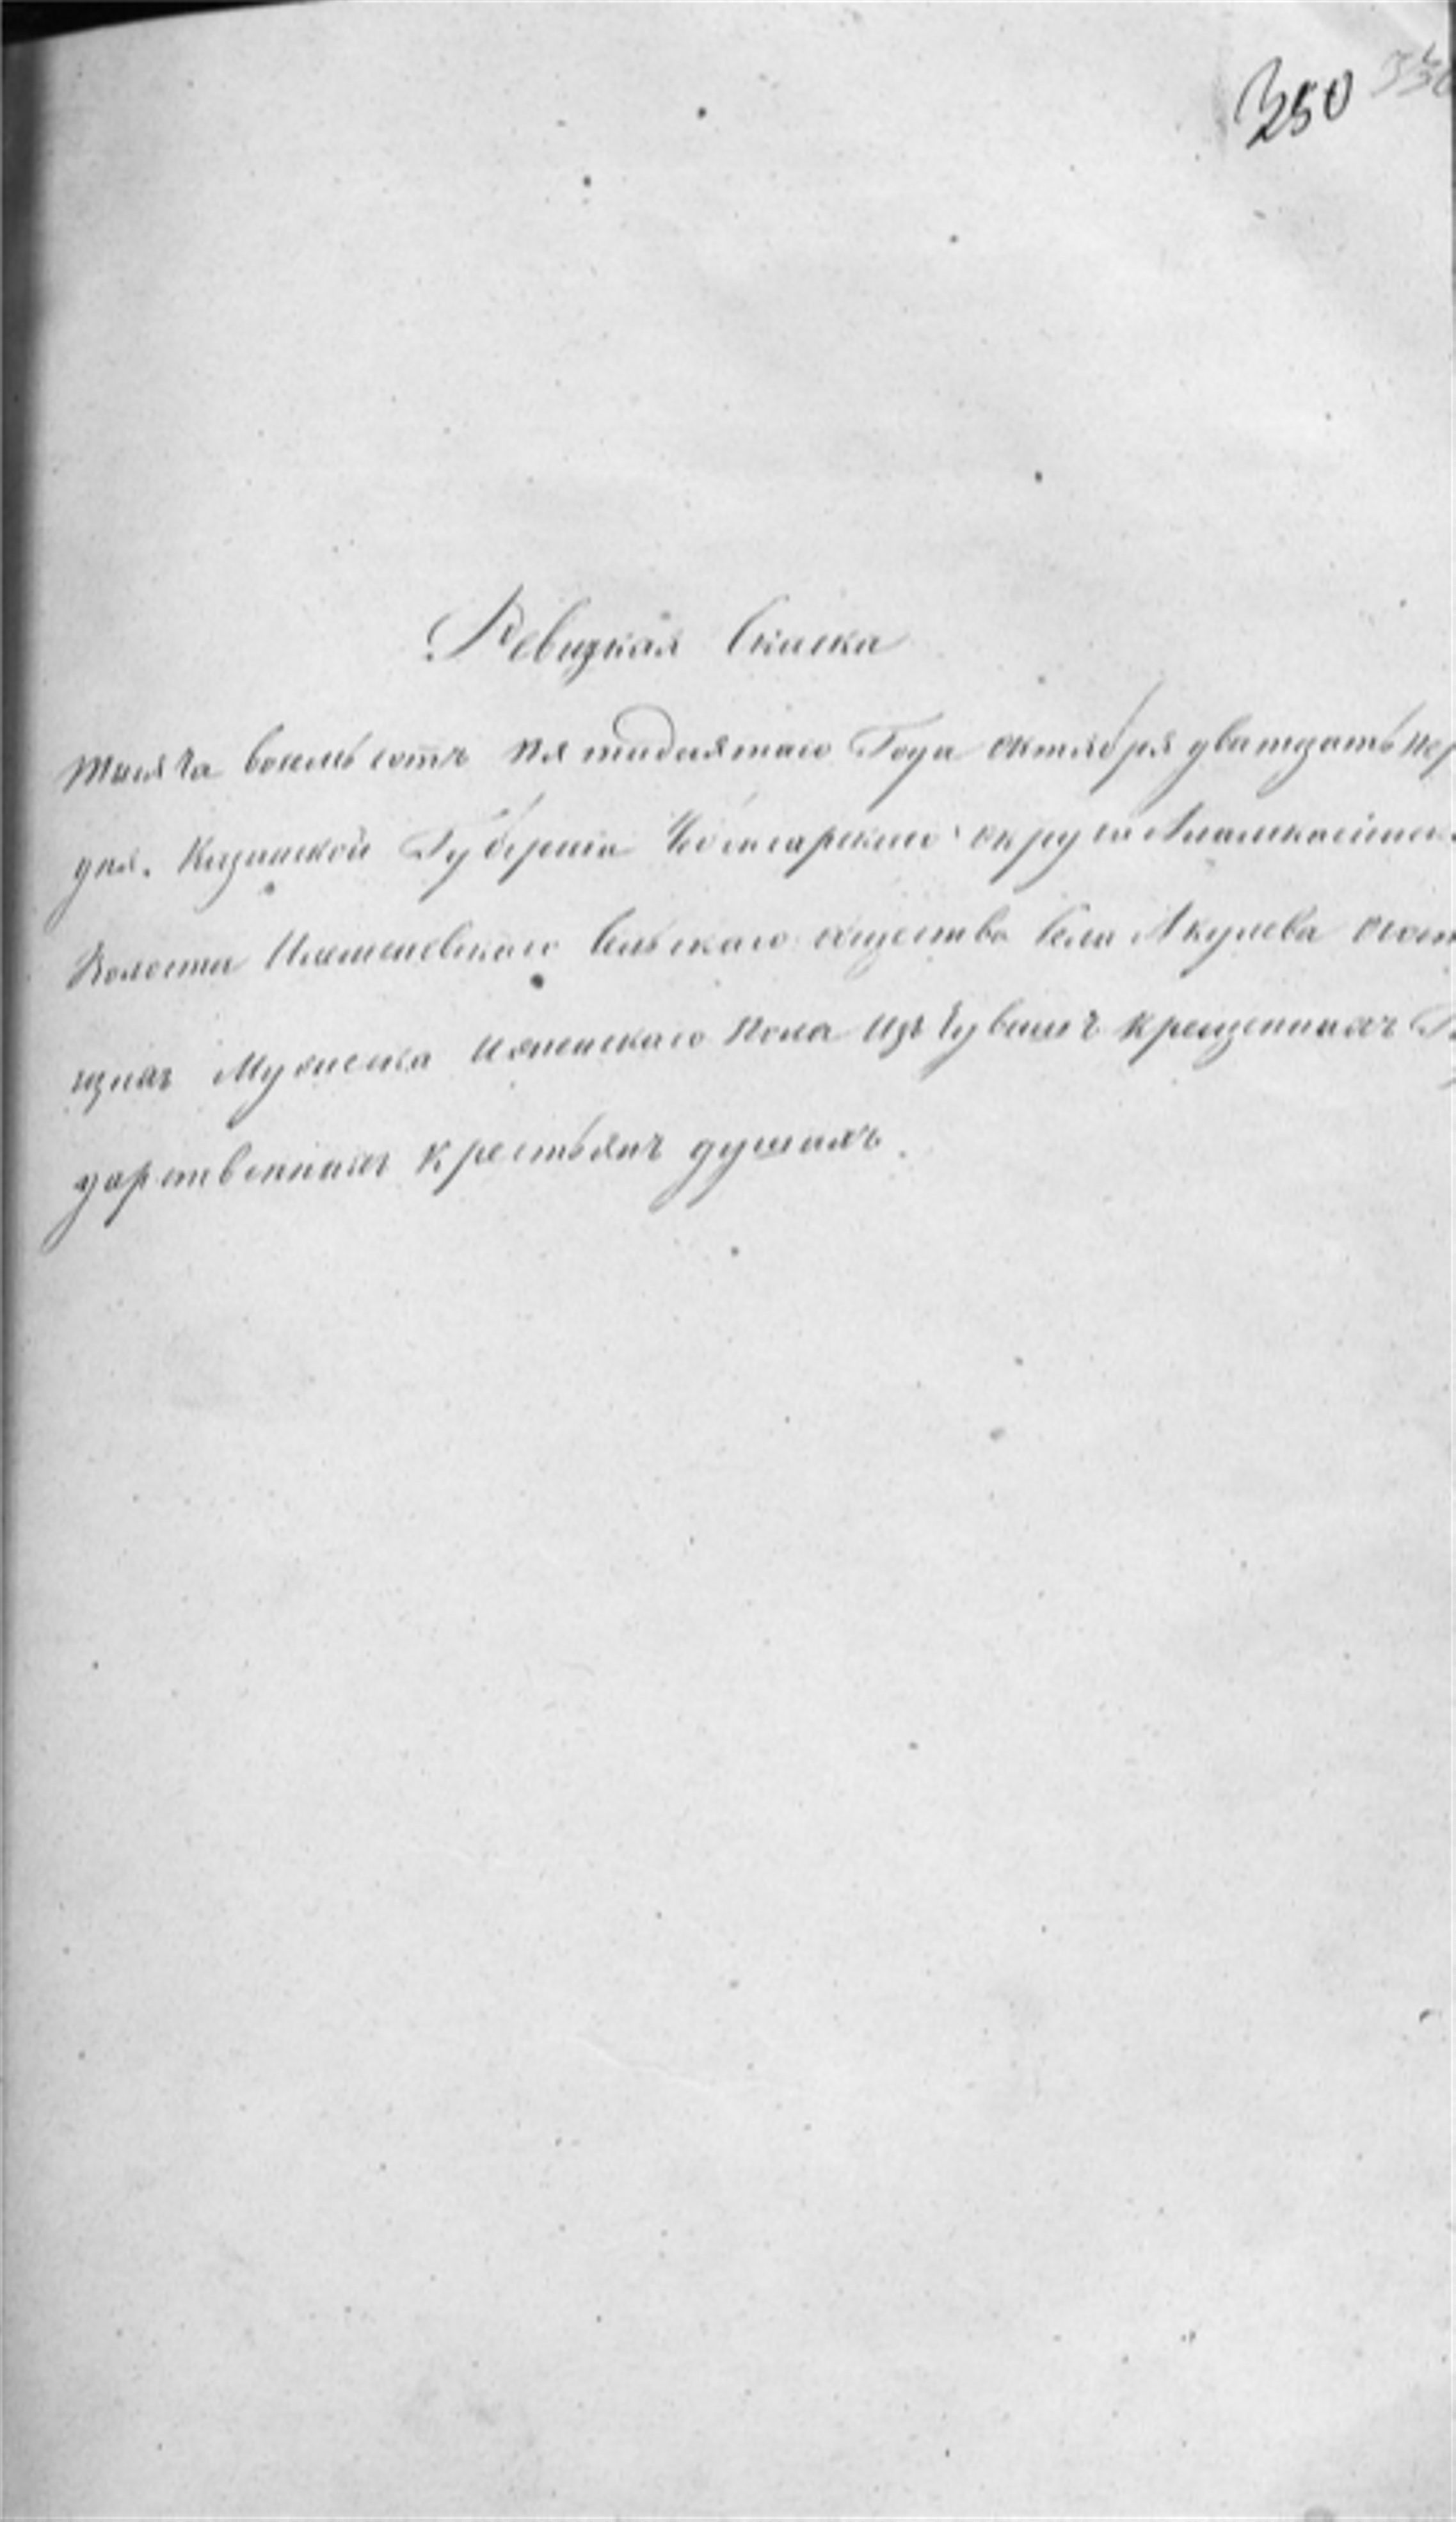 350
Ревизкая Скаска
тысяча восемьсотъ пятидесятаго Года октября дватцать пер
дня. Казанской Губернiи Чебоксарскаго округа
Волости сельскаго общества села Акулева о состо
щихъ Мужеска и женскаго пола изъ Чувашъ крещенныхъ Г
дарственныхъ крестьянъ душахъ.